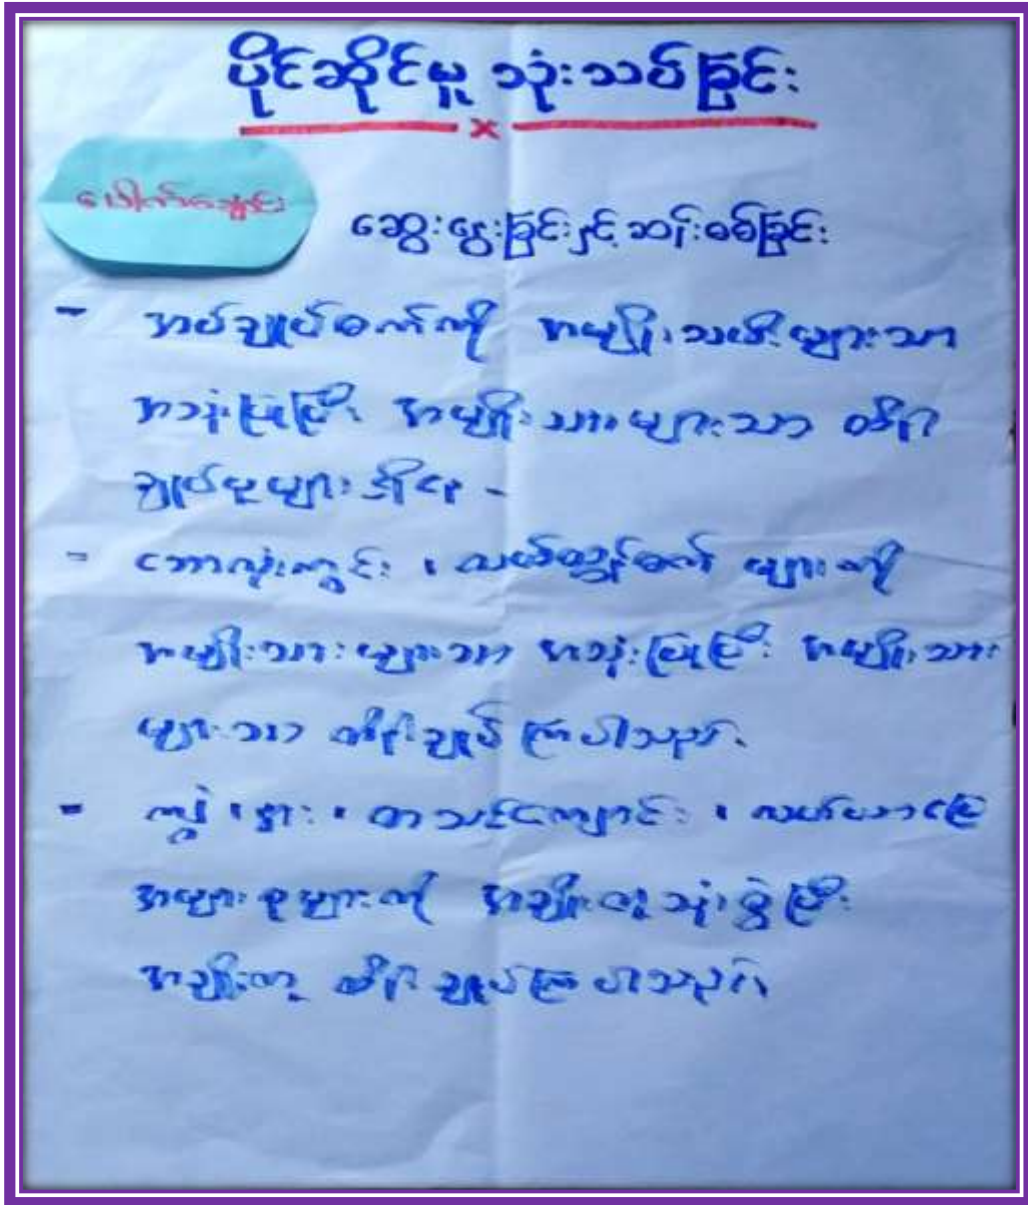 ပိုင်ဆိုင်မှု သုံးသပ်ခြင်း
x
ဆွေးနွေးခြင်းနှင့် ဆန်းစစ်ခြင်း
- အပ်ချုပ်စက်ကို အမျိုးသမီးများသာ
အသုံးပြုပြီး အမျိုးသားများသာ ထိန်း
ချုပ်မှုများ ရှိနေ -
- ဘောလုံးကွင်း ၊ လယ်ထွန်စက် များကို
အမျိုးသားများသာ အသုံးပြုပြီး အမျိုးသား
များသာ ထိန်းချုပ်ကြပါသည်။
- ကျွဲ ၊ နွား ၊ စာသင်ကျောင်း ၊ လယ်ယာမြေ
အများစုများကို အချိုးတူ သုံးစွဲပြီး
အချိုးတူ ထိန်းချုပ်ကြပါသည်။